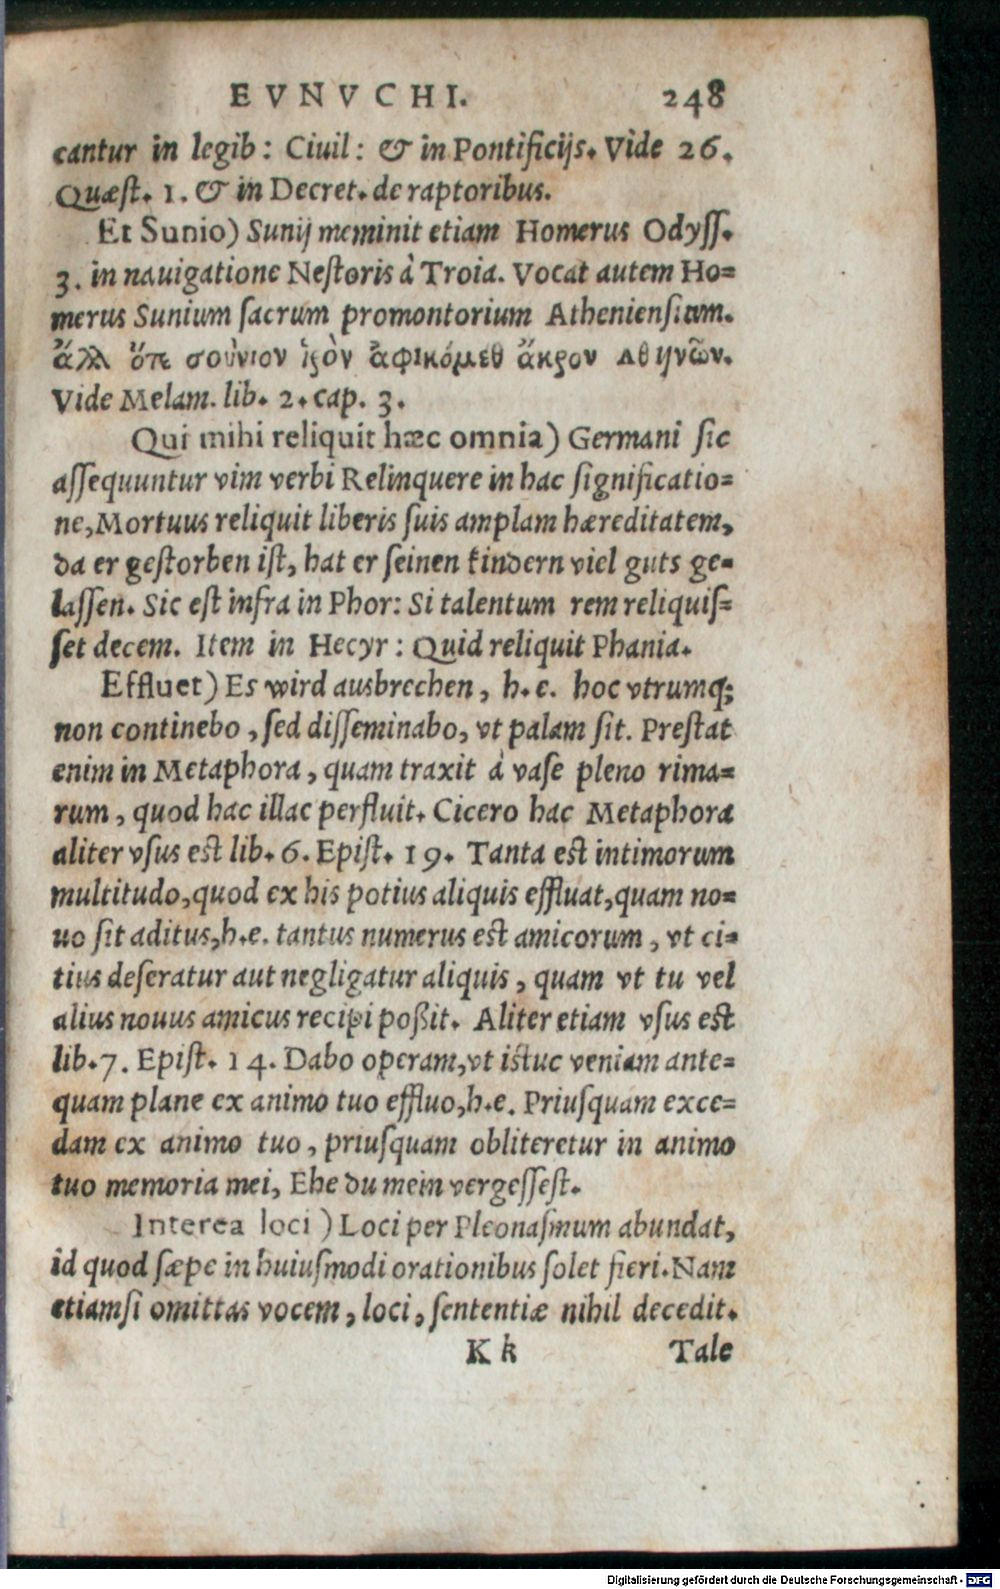 EVNVCHI. 248
cantur in legib: Ciuil: & in Pontificijs. Vide 26.
Quæst. 1. & in Decret. de raptoribus.
Et Sunio) Sunij meminit etiam Homerus Odyss.
3. in nauigatione Nestoris à Troia. Vocat autem Ho=
merus Sunium sacrum promontorium Atheniensium.
ἄλλ ὅτε σούνιον ἱρὸν ἀφικόμεθ ἄκρον ἀθηνῶν.
Vide Melam. lib. 2. cap. 3.
Qui mihi reliquit hæc omnia) Germani sic
assequuntur vim verbi Relinquere in hac significatio=
ne, Mortuus reliquit liberis suis amplam hæreditatem,
da er gestorben ist, hat er seinen kindern viel guts ge=
lassen. Sic est infra in Phor: Si talentum rem reliquis=
set decem. Item in Hecyr: Quid reliquit Phania.
Effluet) Es wird ausbrechen, h.e. hoc vtrumq;
non continebo, sed disseminabo, vt palam sit. Prestat
enim in Metaphora, quam traxit à vase pleno rima=
rum, quod hac illac perfluit. Cicero hac Metaphora
aliter vsus est lib. 6. Epist. 19. Tanta est intimorum
multitudo, quod ex his potius aliquis effluat, quam no=
uo sit aditus, h.e. tantus numerus est amicorum, vt ci=
tius deseratur aut negligatur aliquis, quam vt tu vel
alius nouus amicus recipi poßit. Aliter etiam vsus est
lib. 7. Epist. 14. Dabo operam, vt istuc veniam ante=
quam plane ex animo tuo effluo, h.e. Priusquam exce=
dam ex animo tuo, priusquam obliteretur in animo
tuo memoria mei, Ehe du mein vergessest.
Interea loci) Loci per Pleonasmum abundat,
id quod sæpe in huiusmodi orationibus solet fieri. Nam
etiamsi omittas vocem, loci, sententiæ nihil decedit.
K k Tale
Digitalisierung gefördert durch die Deutsche Forschungsgemeinschaft - DFG